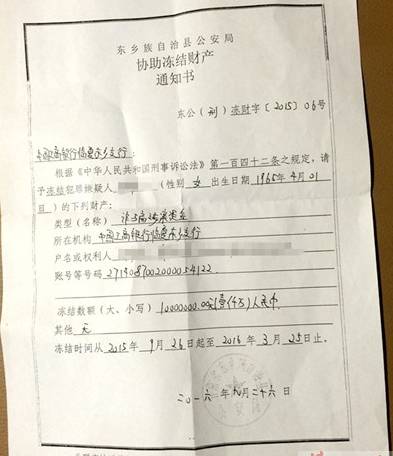 东乡族自治县公安局
协助冻结财产
通知书
东公（刑）冻财字〔2015〕06号
中国工商银行临夏东乡支行：
根据《中华人民共和国刑事诉讼法》第一百四十二条之规定，请
予冻结犯罪嫌疑人（性别 女 出生日期 1965年4月01
日）的下列财产：
类型（名称）
所在机构 中国工商银行临夏东乡支行
户名或权利人
账号等号码 2714089002000054122
冻结数额（大、小写）10000000.00元(壹仟万)人民币
其他 无
冻结时间从2015年9月26日起至2016年3月25日止。
二〇一六年九月二十六日